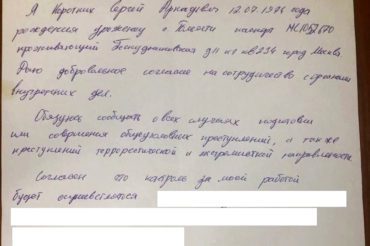 Я Коротких Сергей Аркадьевич 12.07.1976 года
рождения урожденец г. паспорта МС1052670
проживающий д 11 к кв 234 город Москва
Даю добровольное согласие на сотрудничество с органами
внутренних дел.
Обязуюсь сообщать о всех случаях подготовки
или совершения общеуголовных преступлений, а также
преступлений террористической и экстремистской направленности
Согласен что контроль за моей работой
будет осуществляться